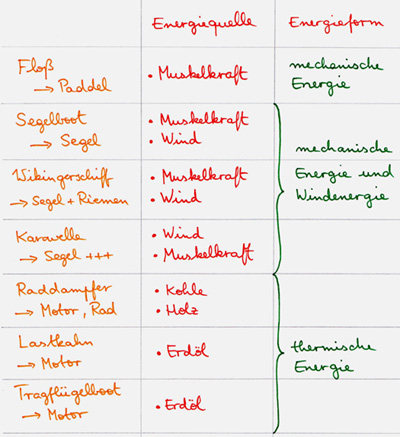 Energiequelle Energieform
Floß
→ Paddel
• Muskelkraft
mechanische
Energie
Segelboot
→ Segel
• Muskelkraft
• Wind
Wikingerschiff
→ Segel + Riemen
• Muskelkraft
• Wind
Karavelle
→ Segel +++
• Wind
• Muskelkraft
mechanische
Energie und
Windenergie
Raddampfer
→ Motor, Rad
• Kohle
• Holz
Lastkahn
→ Motor
• Erdöl
Tragflügelboot
→ Motor
• Erdöl
thermische
Energie